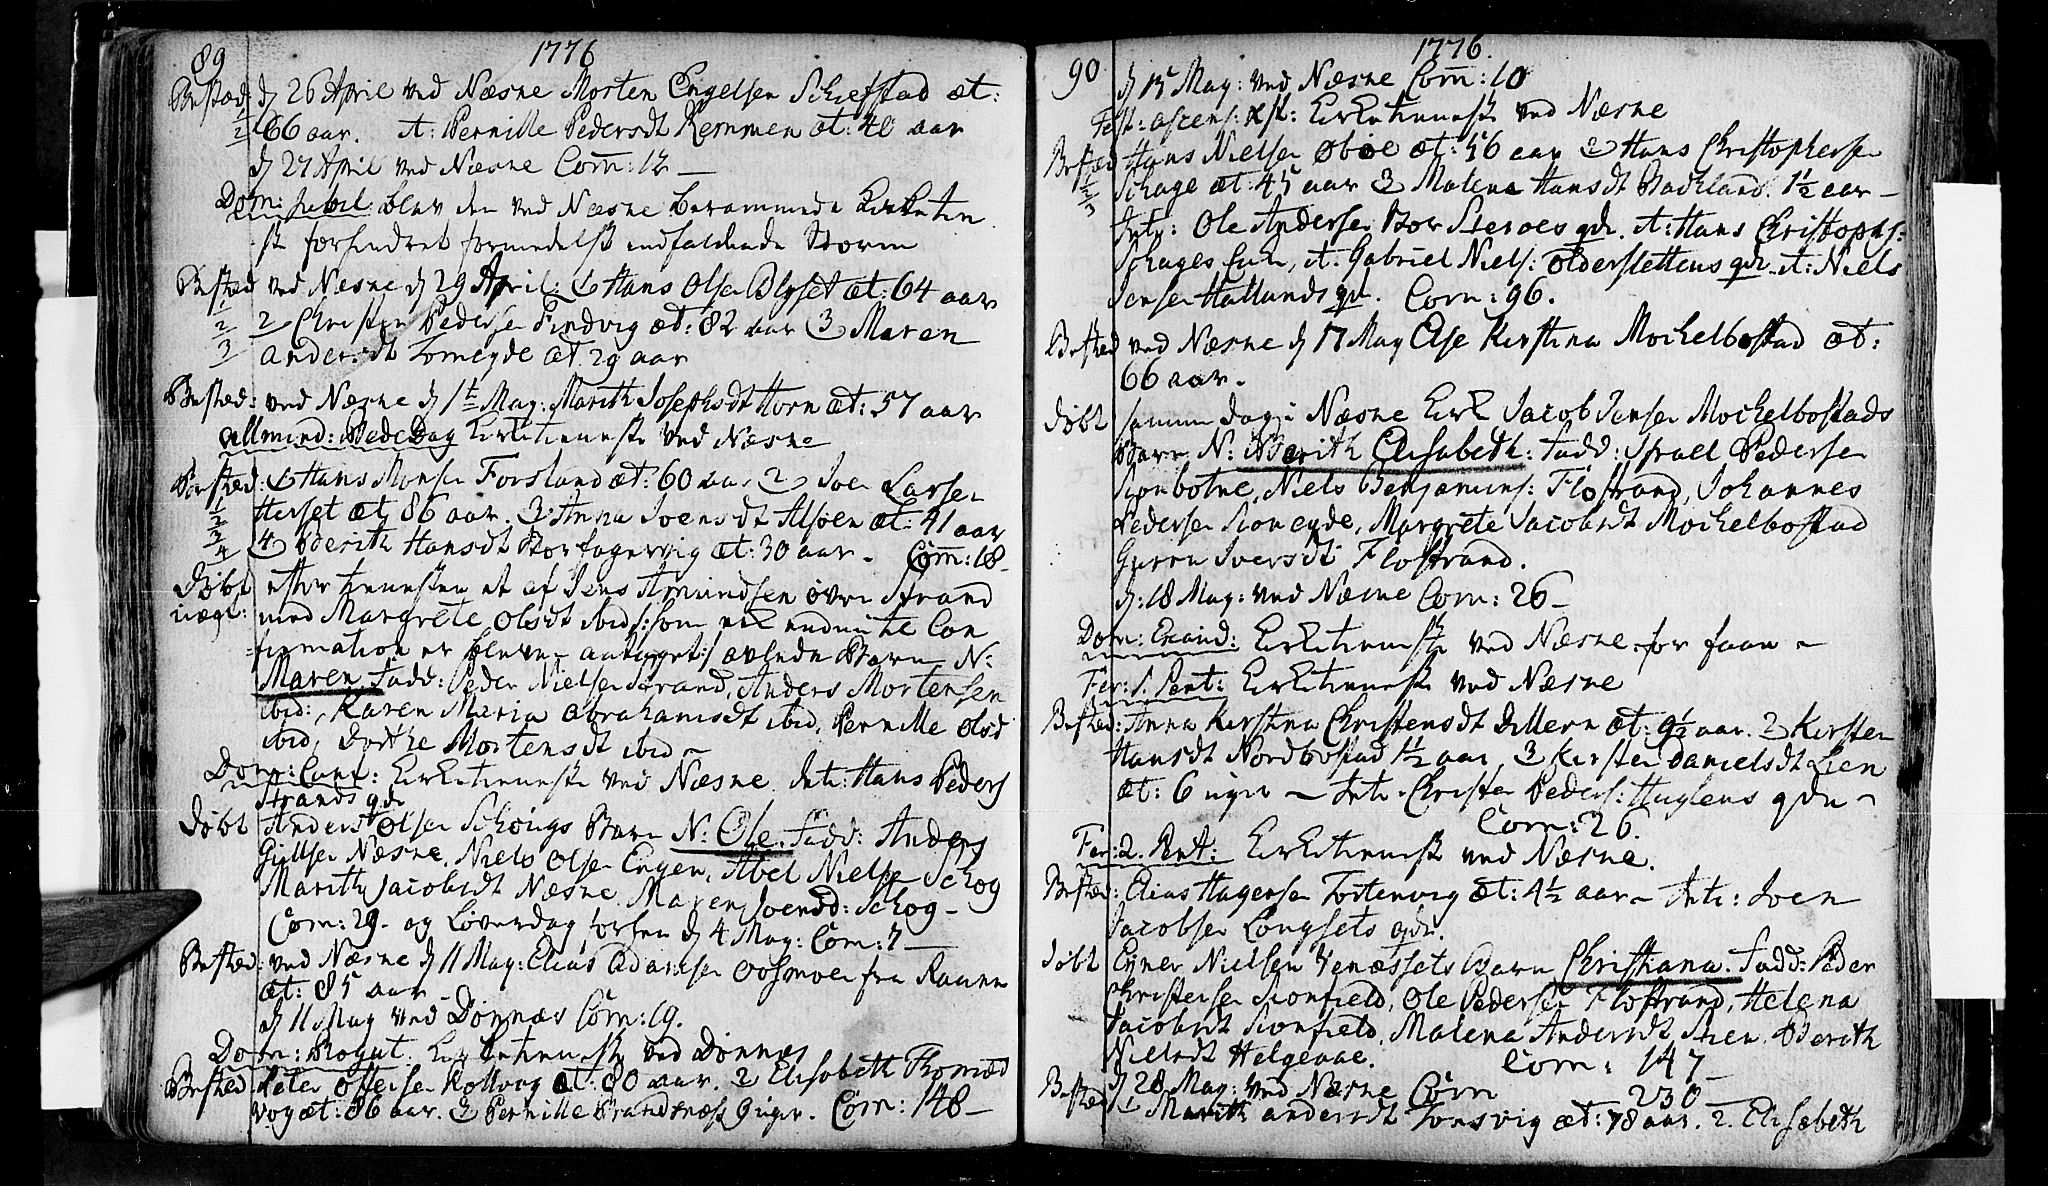 89
1776
Bested: d 26 April ved Næsne Morten Engelsen Schefstad æt:
1/2 66 aar. A: Pernille Pedersdt Remmen æt: 40 aar
d 27 April ved Næsne Com: 12 —
Dom: Jubil. blev den ved Næsne berammede Kirketien
st forhindret formedelst indfaldende Storm
Bested ved Næsne d 29 April: 1 Hans Olsen Blyset æt: 64 aar
1/2/3 2 Christen Pedersen Findvig æt: 82 aar 3 Maren
Andersdt Tomeyde æt. 29 aar
Bested: ved Næsne d 1te May: Marith Josephsdt Horn æt: 57 aar
Allmind: Bede Dag Kirketienneste ved Næsne
Bested: 1 Hans Monsen Forsland æt: 60 aar 2 Joen Larsen
1/2/3/4 Herset æt 86 aar. 3 Anna Joensdt Alsøen æt: 41 aar
4 Berith Hansdt Storfagervig æt: 30 aar - Com: 18-
Døbt efter tiennesten et af Jens Amundsen øvre Strand
uægt: med Margrete Olsdt ibid /: som ved Con
firmation er bleven antaget :/ avlede Barn N:
Maren Fadd: Peder Nielsen Strand, Anders Mortensen
ibid:, Karen Maria Abrahamsdt ibid, Pernille Olsd
ibid, Dorthe Mortensdt ibid -
Dom: Cant: Kirketienneste ved Næsne. Int: Hans Peders
Strands qde
Døbt Anders Olsen Schougs Barn N: Ole. Fadd: Anders
Næsne, Niels Olsen Engen, Abel Nielsen Schog
Marith Jacobsdt Næsne, Maren Joensd: Schog -
Com: 29- og Løverdag forhen d 4 May: Com: 7 —
Bested: ved Næsne d 11 May: Elias Adamsen fra Ranen
æt: 85 aar -
d 11 May ved Dønnæs Com: 19.
Dom: Rogat. Kirketienneste ved Dønnæs
Bested Peter Offersen Kollvog æt: 80 aar. 2 Elisabeth Thomæd
Vog æt: 86 aar. 3 Pernille Brandsnæss 9 uger. Com: 148 —
90
1776.
d 15 May: ved Næsne Com: 10
Fest: ascens: Xsti: Kirketienneste ved Næsne
Bested Hans Nielsen Oboe æt: 56 aar 2 Hans Christophersen
1/2/3 Schage æt: 45 aar 3 Malena Hansdt Backland. 1 1/2 aar -
Intr: Ole Andersen Bor Steroes qde. A: Hans Christophs:
Schages Enke, A: Gabriel Niels: Olderslettens qde. A: Niels
Jensen Hallands qde. Com: 96.
Bested ved Næsne d 17 May Else Kirstina Mochelbostad æt:
66 aar.
Døbt samme dag i Næsne Kirk Jacob Jensen Mochelbostads
Barn N: Berith Elisabeth: Fadd: Israel Pedersen
Sionbotne, Niels Benjamins: Flostrand, Johannes
Pedersen Sioneyde, Margrete Jacobsdt Mochelbostad
Guren Iversdt Flostrand.
d: 18 May: ved Næsne Com: 26 -
Dom: Exaud: Kirketienneste ved Næsne for faae -
Fer: 1. Pent: Kirketienneste ved Næsne
Bested: Anna Kirstina Christensdt Dillern æt: 9 1/2 aar. 2 Kirsten
Hansdt Nordbostad 1 1/2 aar, 3 Kirsten Danielsdt Lien
æt: 6 uger - Intr. Christen Peders: Huglens qde -
Com: 26.
Fer: 2. Pent: Kirketienneste ved Næsne.
Bested: Elias Hagensen Tostenvig æt: 4 1/2 aar - Intr: Joen
Jacobsen Longsets qde.
Døbt Eyner Nielsen Venæssets Barn Christiana. Fadd: Peder
Christensen Sionfield, Ole Pedersen Flostrand, Helena
Jacobsdt Sionfield, Malena Andersdt Steen, Berith
Nielsdt Helgeaae. Com: 147 -
d 28 May: ved Næsne Com 230 —
Bested 1 Marith Andersdt Tonsvig æt: 78 aar. 2. Elisabeth